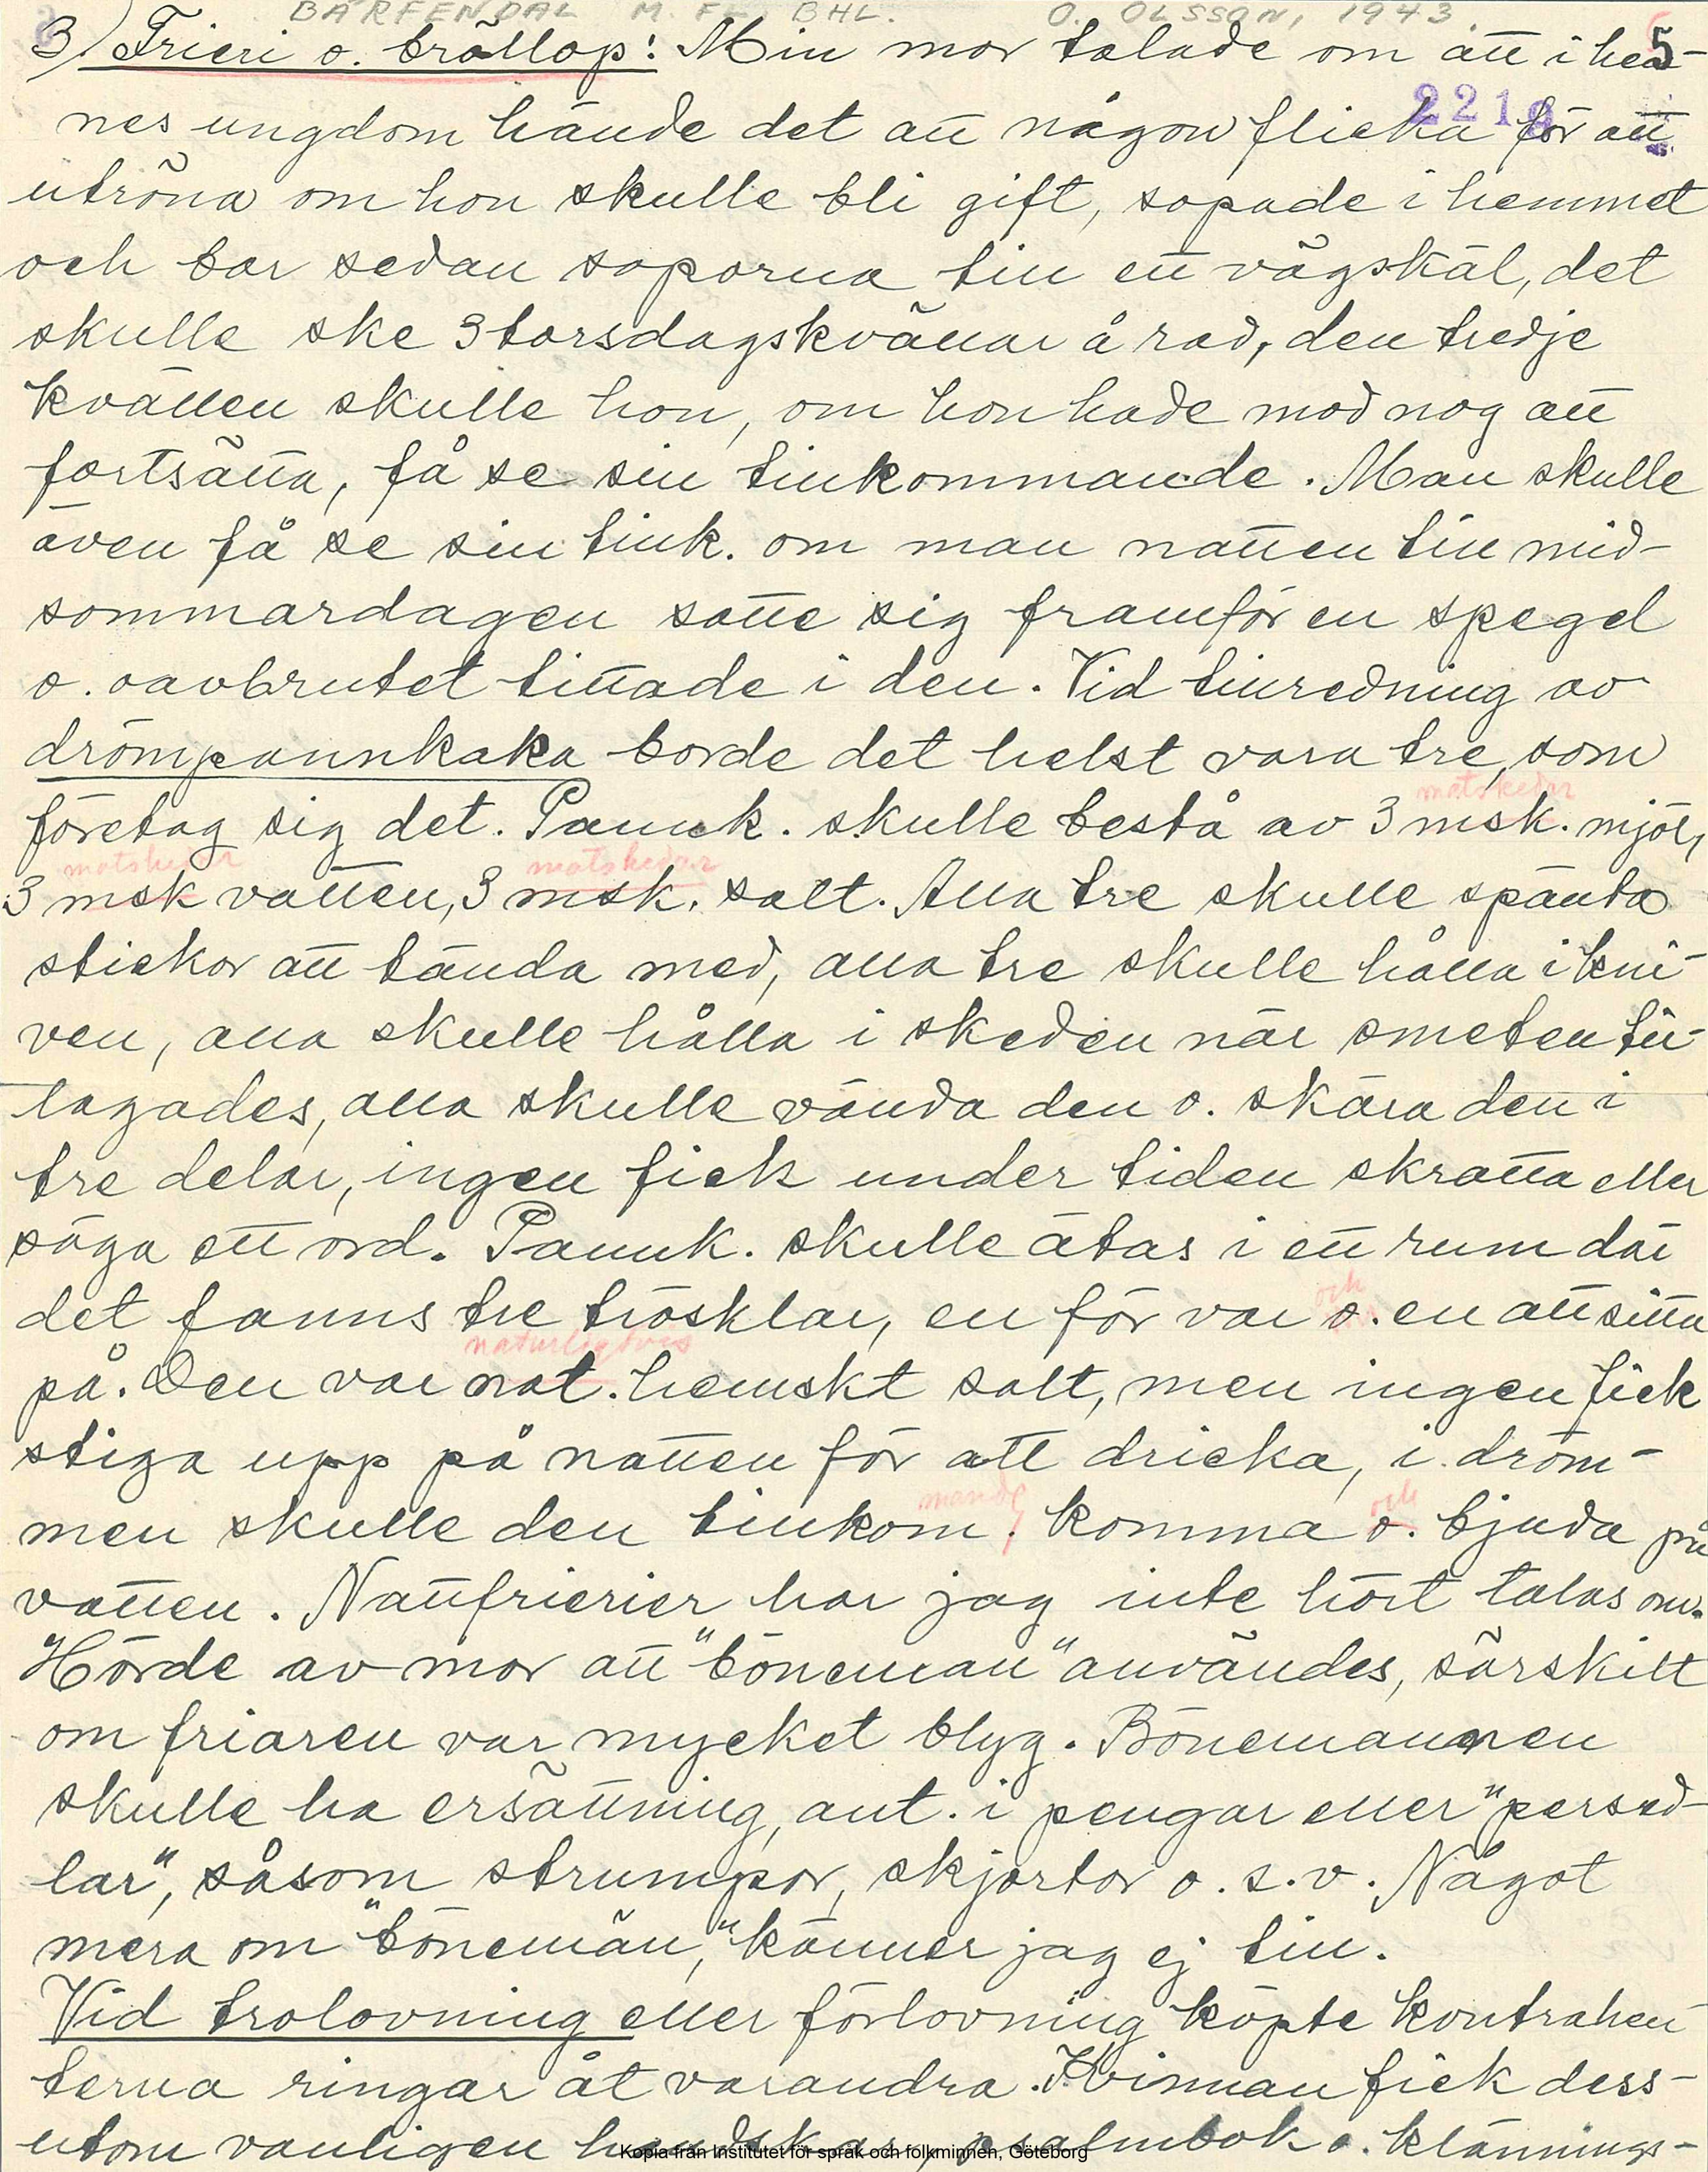 BÄRFENDAL M. FL. BHL. O. OLSSON, 1943.
3) Frieri o. bröllop: Min mor talade om att i hen- 5
2218
nes ungdom hände det att någon flicka för att
utröna om hon skulle bli gift, sopade i hemmet
och bar sedan soporna till ett vägskäl, det
skulle ske 3 torsdagskvällar å rad, den tredje
kvällen skulle hon, om hon hade mod nog att
fortsätta, få se sin tillkommande. Man skulle
även få se sin tillk. om man natten till mid-
sommardagen satte sig framför en spegel
o. oavbrutet tittade i den. Vid tillredning av
drömpannkaka borde det helst vara tre, som
matskedar
företog sig det. Pannk. skulle bestå av 3 msk. mjöl,
matskedar matskedar
3 msk vatten, 3 msk. salt. Alla tre skulle spänta
stickor att tända med, alla tre skulle hålla i kni-
ven, alla skulle hålla i skeden när smeten till-
lagades, alla skulle vända den o. skära den i
tre delar, ingen fick under tiden skratta eller
säga ett ord. Pannk. skulle ätas i ett rum där
och
det fanns tre trösklar, en för var o. en att sitta
naturligtvis
på. Den var nat. hemskt salt, men ingen fick
stiga upp på natten för att dricka, i dröm-
mande och
men skulle den tillkom. komma o. bjuda på
vatten. Nattfrierier har jag inte hört talas om.
Hörde av mor att "böneman" användes, särskilt
om friaren var mycket blyg. Bönemannen
skulle ha ersättning, ant. i pengar eller "persed-
lar", såsom strumpor, skjortor o. s. v. Något
mera om "bönemän", känner jag ej till.
Vid trolovning eller förlovning köpte kontrahen-
terna ringar åt varandra. Kvinnan fick dess-
utom vanligen handskar, psalmbok o. klännings-
Kopia från Institutet för språk och folkminnen, Göteborg